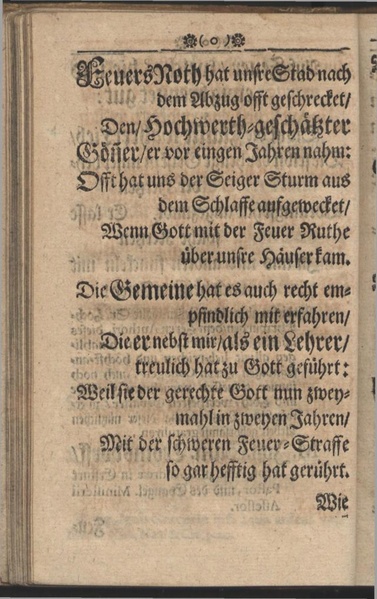 (o)
FeuersNoth hat unsre Stad nach
dem Abzug offt geschrecket/
Den/ Hochwerth-geschätzter
Göñer/er vor eingen Jahren nahm:
Offt hat uns der Seiger Sturm aus
dem Schlaffe aufgewecket/
Wenn Gott mit der Feuer Ruthe
über unsre Häuser kam.
Die Gemeine hat es auch recht em-
pfindlich mit erfahren/
Die er nebst mir/als ein Lehrer/
treulich hat zu Gott geführt:
Weil sie der gerechte Gott nun zwey-
mahl in zweyen Jahren/
Mit der schweren Feuer-Straffe
so gar hefftig hat gerührt.
Wie